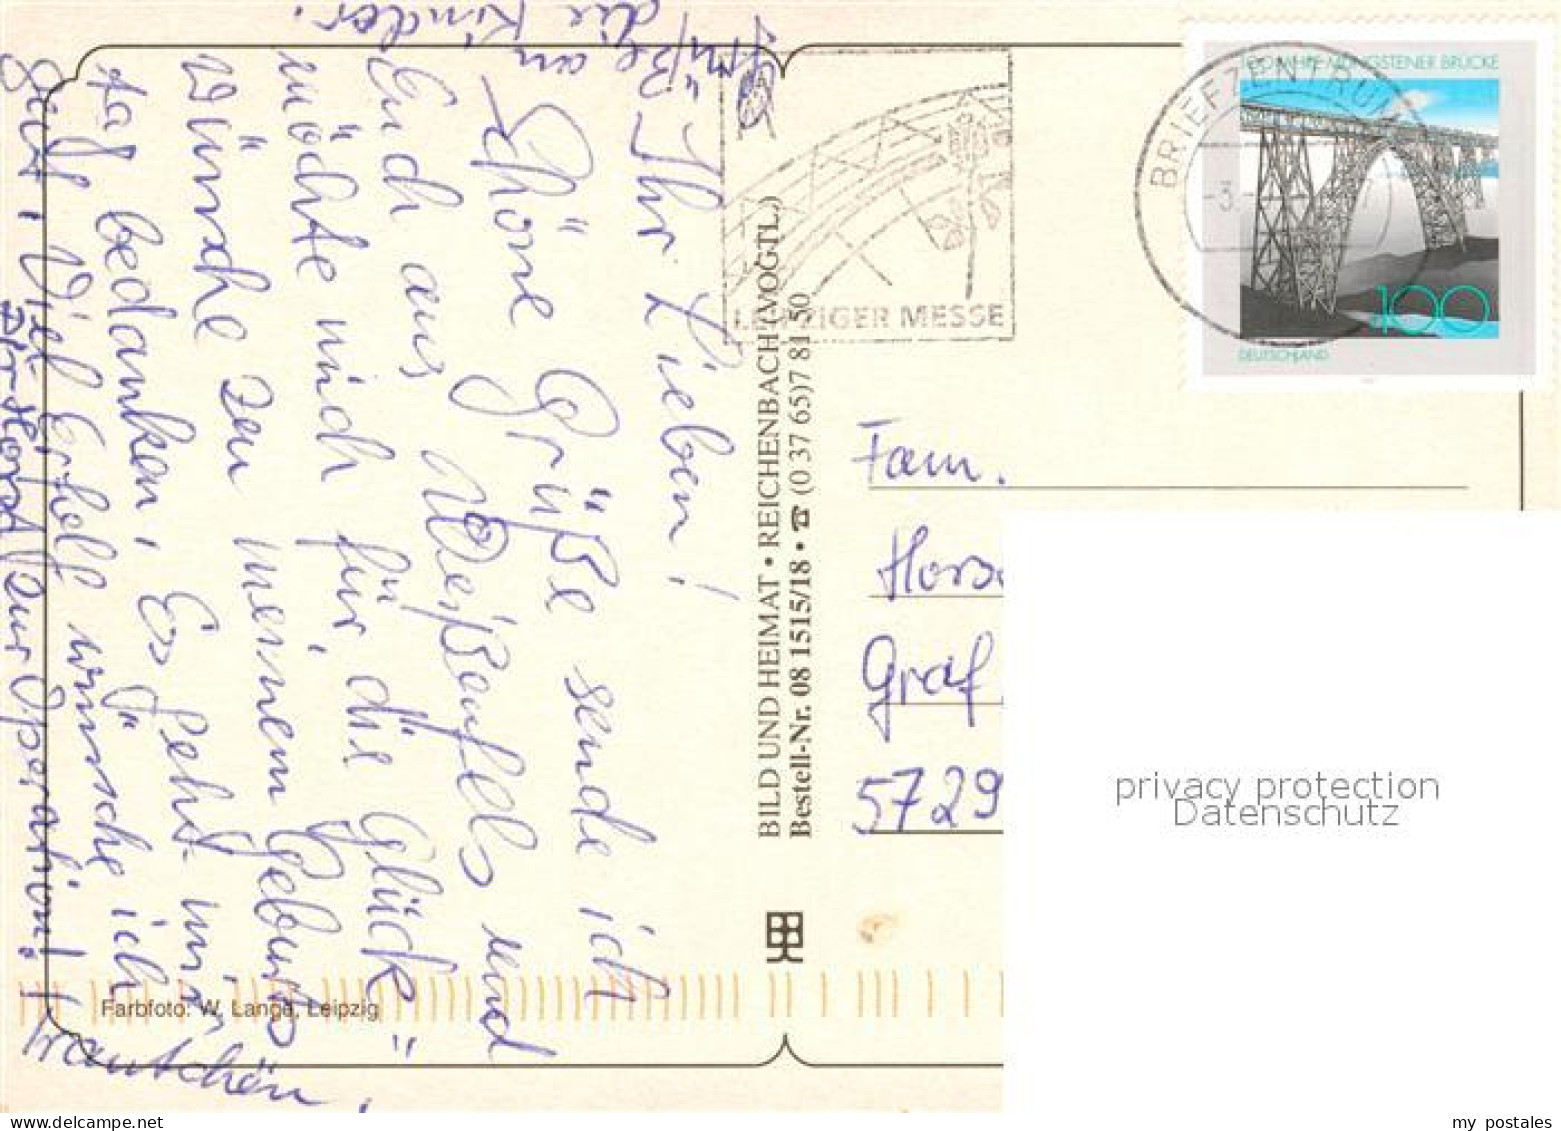 Grüße an
die Kinder.
Ihr Lieben!
Schöne Grüße sende ich
Euch aus Weißenfels und
möchte mich für die Glück-
wünsche zu meinem Geburts-
tag bedanken, Es geht mir
gut, Viel Erfolg wünsche ich
Dir Horst zur Operation!
Trautchen,
Farbfoto: W. Lange, Leipzig
BILD UND HEIMAT • REICHENBACH (VOGTL.)
Bestell-Nr. 08 1515/18 • ☎ (0 37 65) 7 81 50
LEIPZIGER MESSE
BRIEFZENTRUM
-3.
100 JAHRE MÜNGSTENER BRÜCKE
100
DEUTSCHLAND
Fam.
Horst
Graf
5729
privacy protection
Datenschutz
my postales